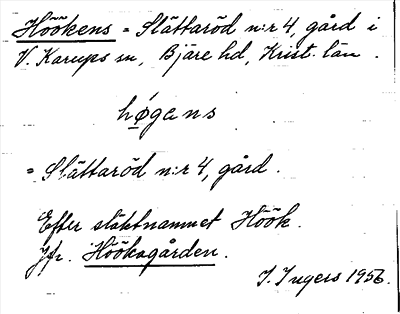 Höökens = Slättaröd n:r 4, gård i
V. Karups sn, Bjäre hd, Krist. län.
høgens
= Slättaröd n:r 4, gård.
Efter släktnamnet Höök.
Jfr. Hööksgården.
I. Ingers 1956.